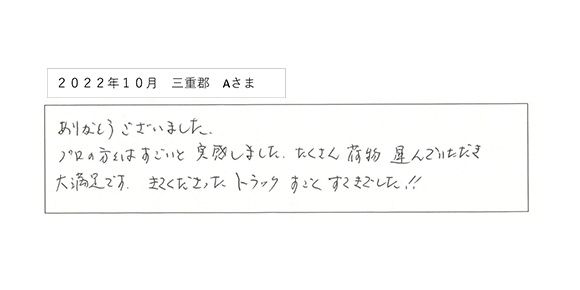 ２０２２年１０月　三重郡　Aさま
ありがとうございました。
プロの方々はすごいと実感しました。たくさん荷物運んでいただき
大満足です。きてくださったトラックすごくすてきでした!!